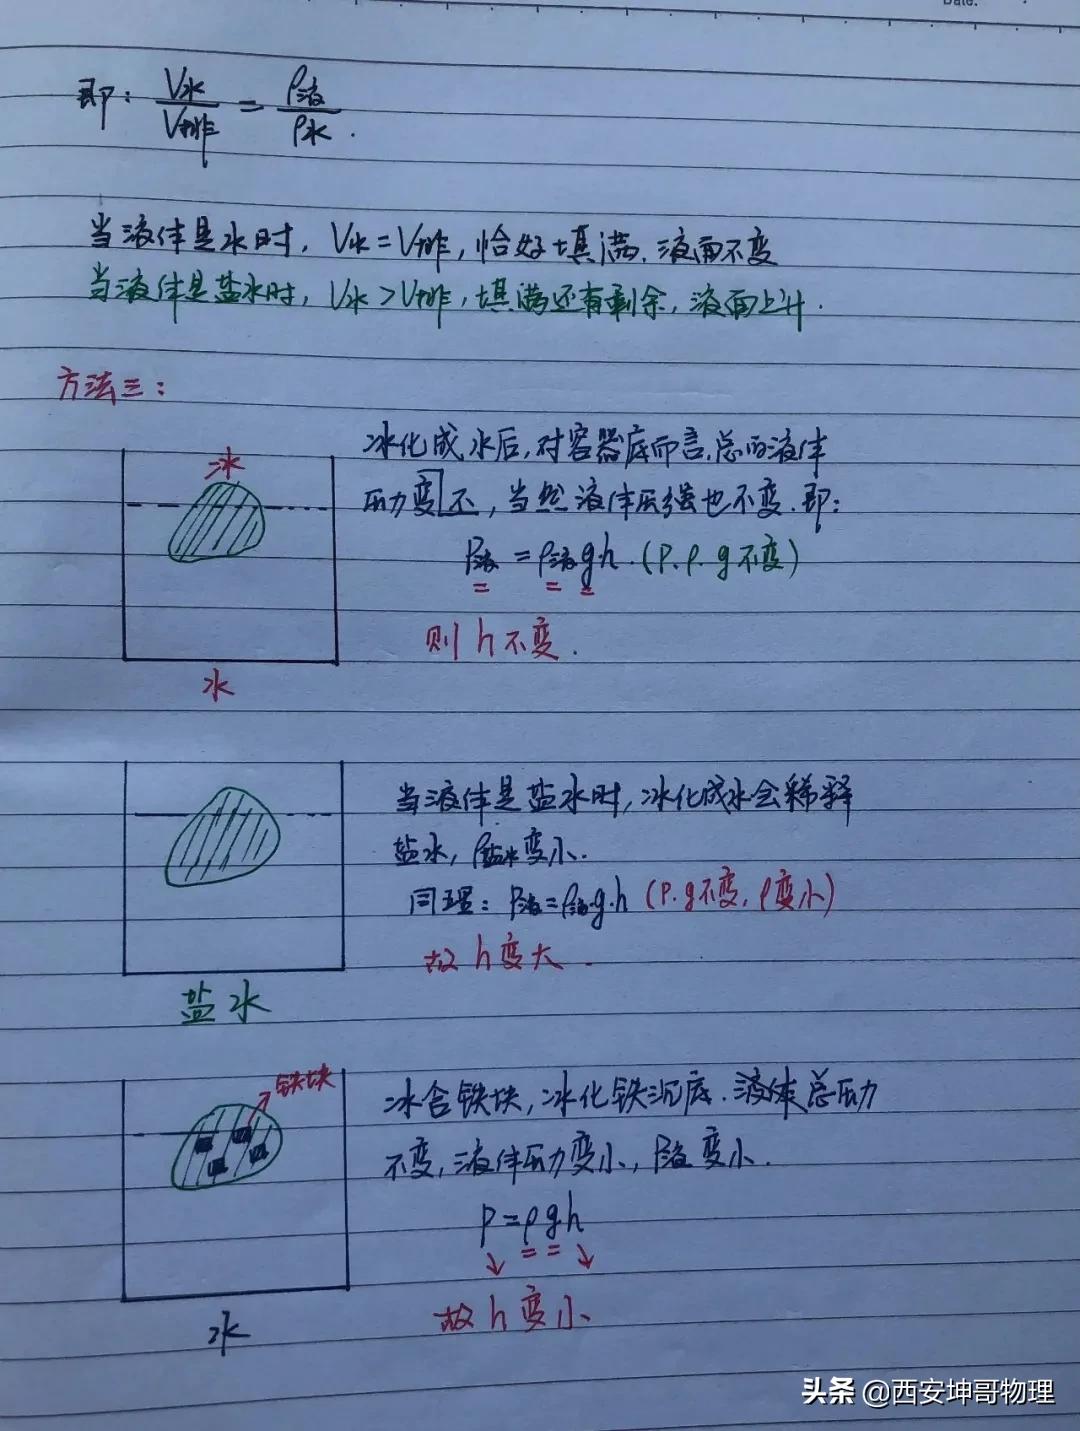 Date:
即: V水/V排 = ρ液/ρ水.
当液体是水时, V水=V排, 恰好填满. 液面不变
当液体是盐水时, V水>V排, 填满还有剩余, 液面上升.
方法三:
冰
冰化成水后, 对容器底而言, 总的液体
压力变不, 当然液体压强也不变. 即:
P液 = ρ液gh. (P. ρ. g不变)
则 h 不变.
水
当液体是盐水时, 冰化成水会稀释
盐水, ρ盐水变小.
同理: P液=ρ液g.h (P. g不变, ρ变小)
故 h 变大.
盐水
铁块
冰含铁块, 冰化铁沉底. 液体总压力
不变, 液体压力变小, P液变小.
P=ρgh
↓ = = ↓
故 h 变小
水
头条 @西安坤哥物理